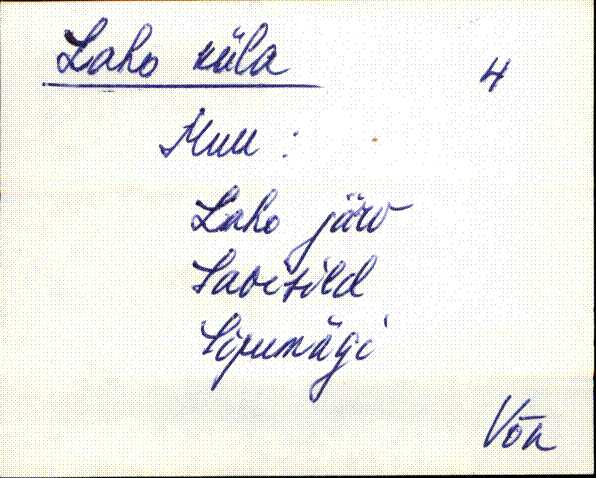 Laho küla 4
Muu:
Laho järv
Savisild
Sipumägi
Võn